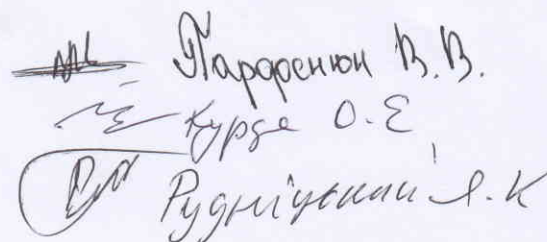 Парфенюк В.В.
Курда О.Е
Рудніцький Я.К